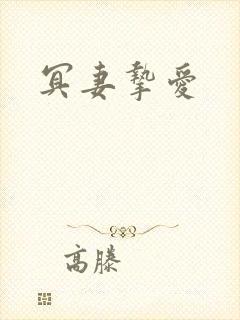 冥妻摯愛
高滕